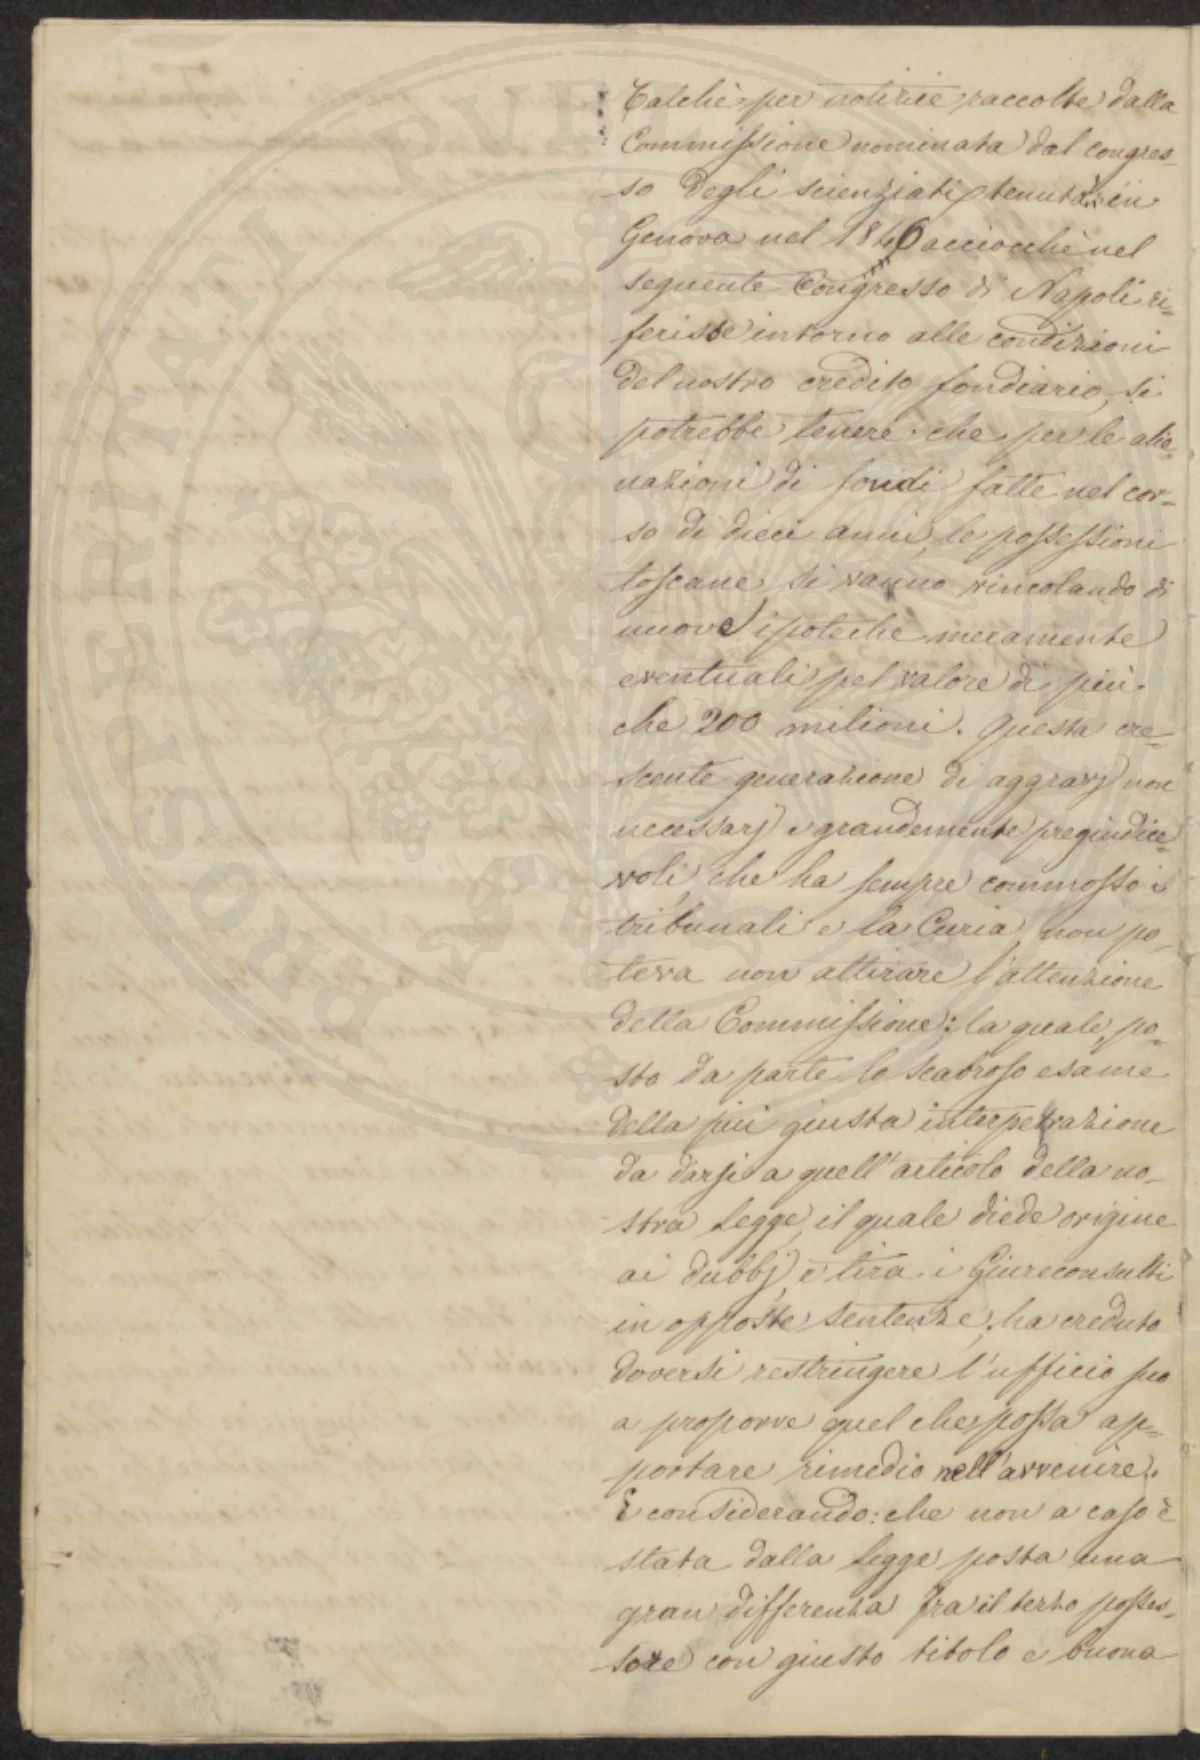 Talchè per notizie raccolte dalla
Commissione nominata dal congres-
so degli scienziati tenuto in
Genova nel 1846 acciocchè nel
seguente Congresso di Napoli ri=
ferisse intorno alle condizioni
del nostro credito fondiario, si
potrebbe tenere che per le alie=
nazioni di fondi fatte nel cor=
so di dieci anni, le possessioni
toscane, si vanno vincolando di
nuove ipoteche meramente
eventuali pel valore di più
che 200 milioni. Questa cre=
scente generazione di aggravj non
necessarj e grandemente pregiudice=
voli, che ha sempre commosso i
tribunali e la Curia, non po-
teva non attirare l'attenzione
della Commissione: la quale, po-
sto da parte lo scabroso esame
della più giusta interpetrazione
da darsi a quell'articolo della no-
stra legge, il quale diede origine
ai dubbj, e tira i Giureconsulti
in opposte sentenze, ha creduto
doversi restringere l'ufficio suo
a proporre quel che possa ap=
portare rimedio nell'avvenire.
E considerando: che non a caso è
stata dalla legge posta una
gran differenza fra il terzo posses-
sore con giusto titolo e buona
PROSPERITATI PVBL